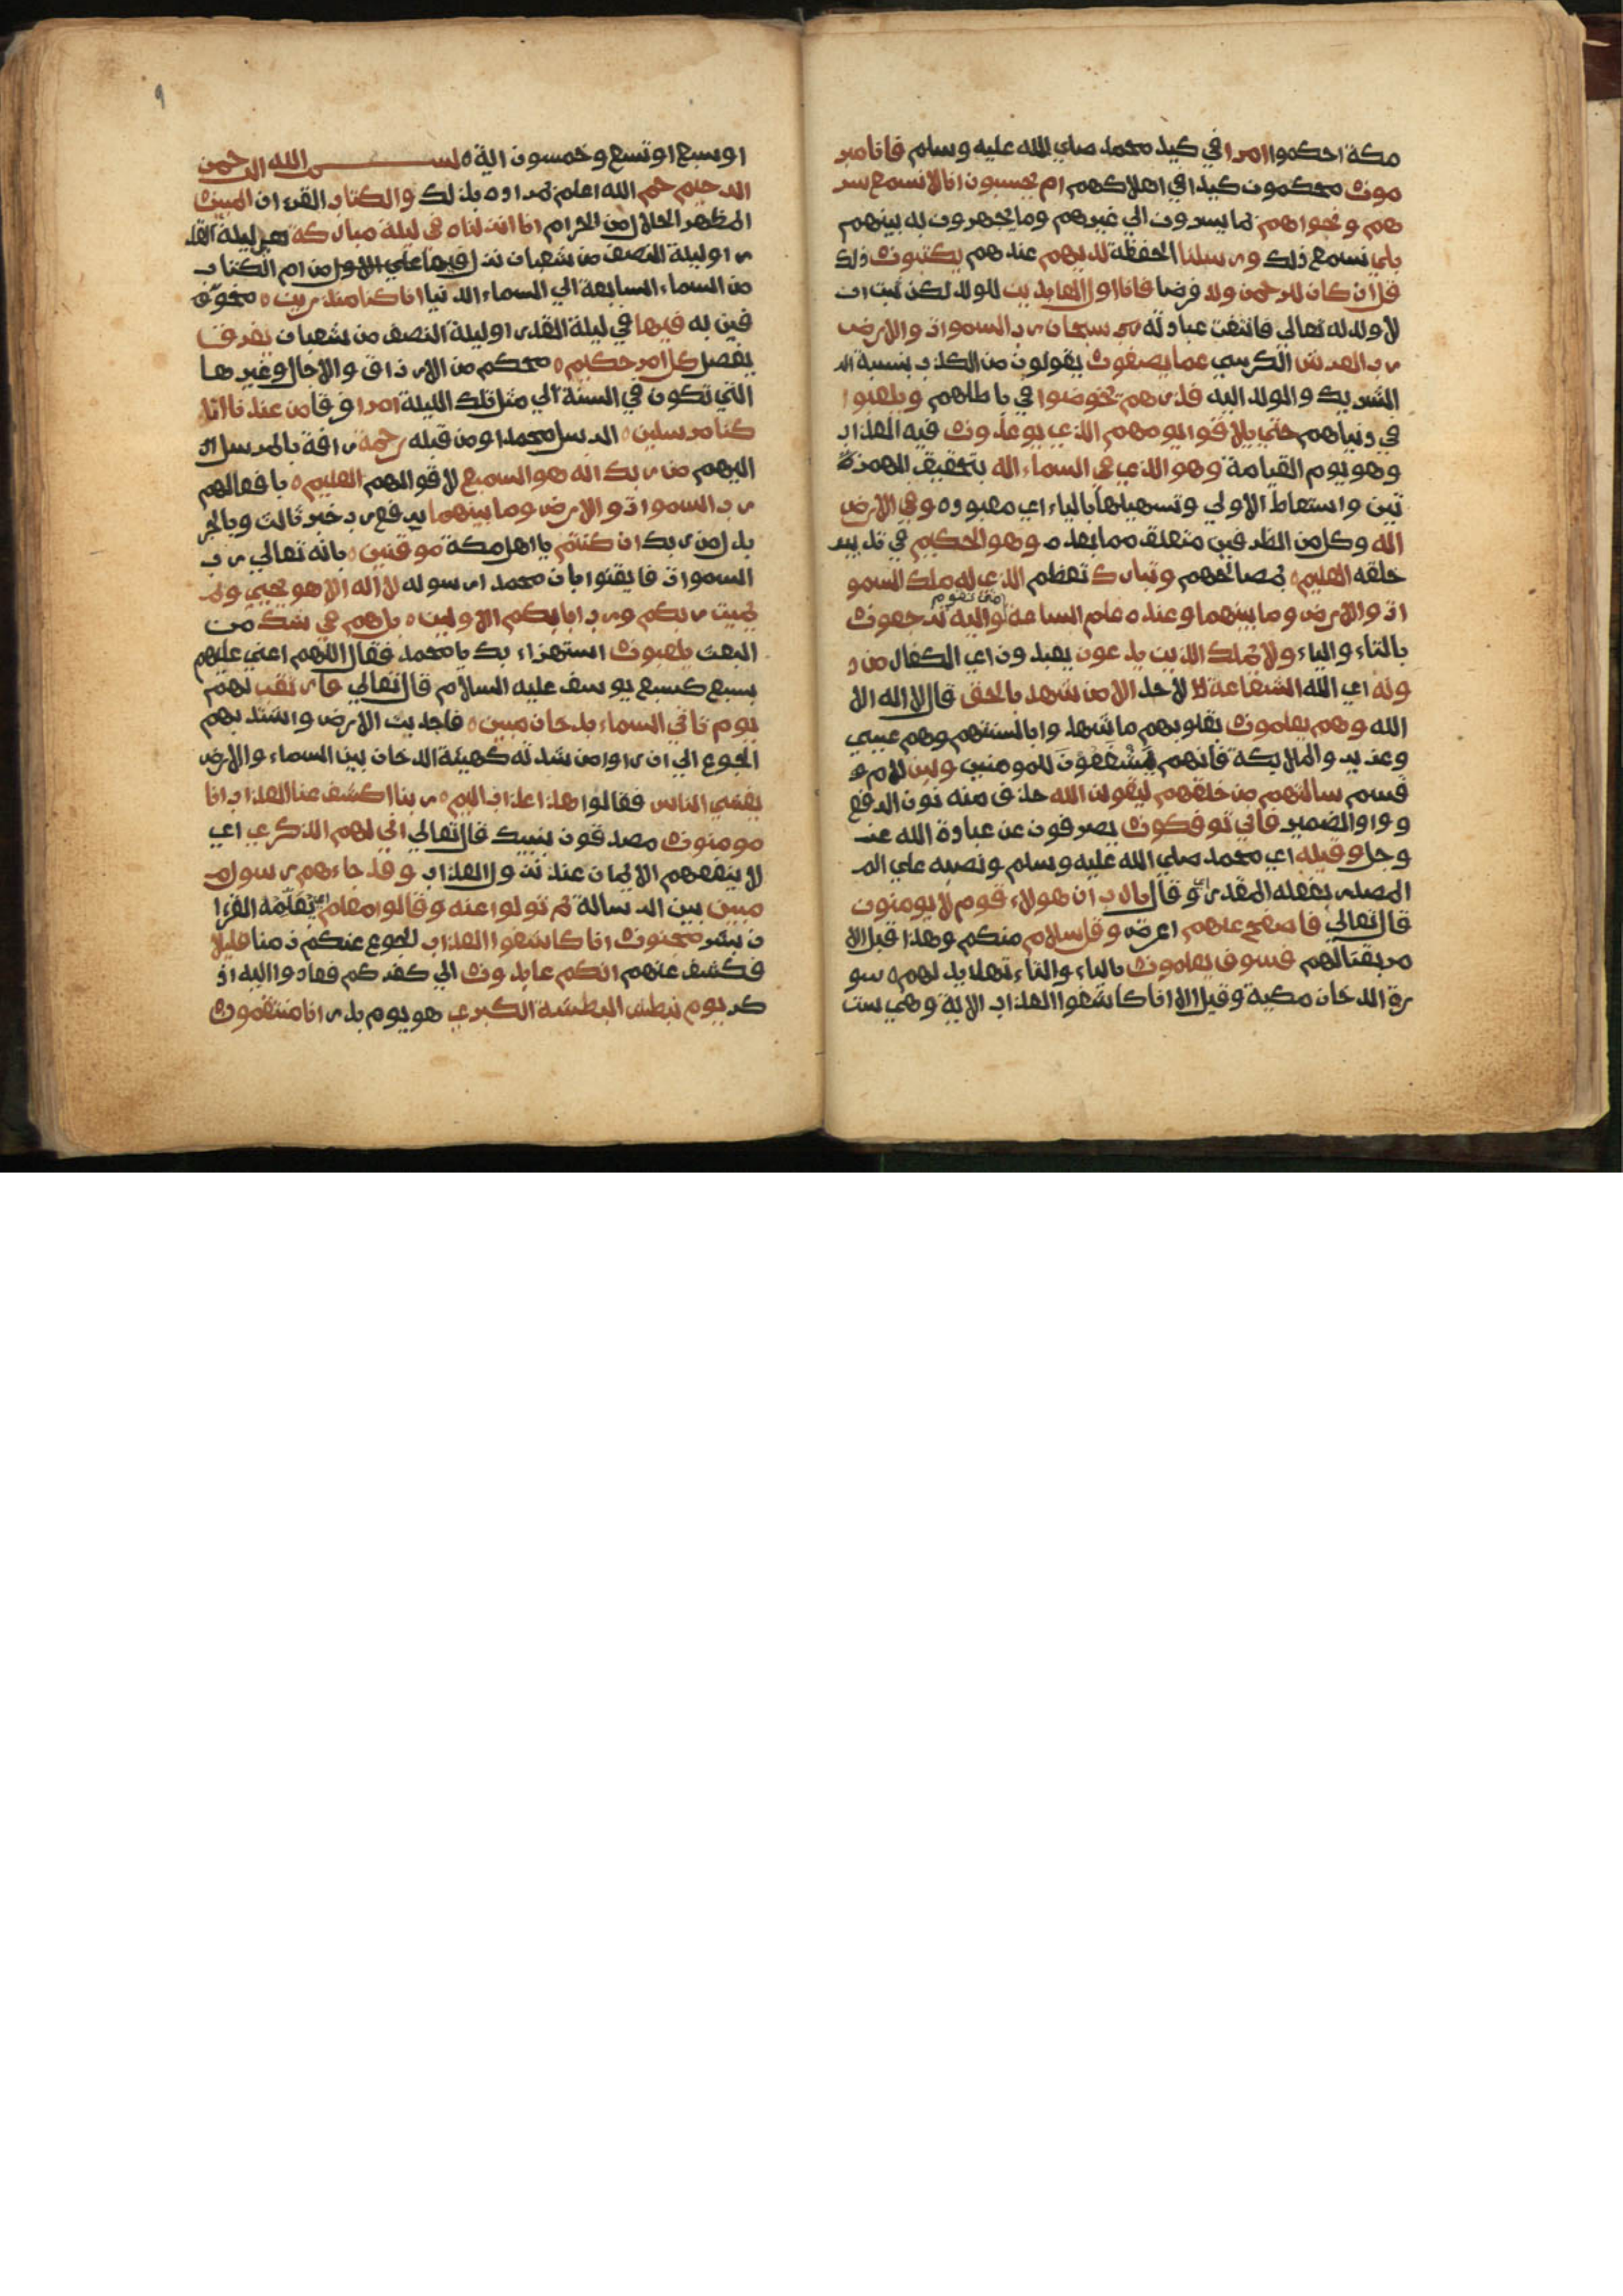 مكة احكموا امرا في كيد محمد صلي الله عليه وسلم فانا مبر
مون محكمون كيدا في اهلاكهم ام يحسبون انا لا نسمع سر
هم ونجواهم ما يسرون الي غيرهم وما يجهرون به بينهم
بلي نسمع ذلك ورسلنا الحفظة لديهم عندهم يكتبون ذلك
قل ان كان للرحمن ولد فرضا فانا اول العابدين للولد لكن ثبت ان
لا ولد له تعالي فانتفت عبادته سبحان رب السموات والارض
رب العرش الكرسي عما يصفون يقولون من الكذب بنسبة ال
الشريك والولد اليه فذرهم يخوضوا في باطلهم ويلعبوا
في دنياهم حتي يلاقوا يومهم الذي يوعدون فيه العذاب
وهو يوم القيامة وهو الذي في السماء اله بتحقيق الهمزة
تين واسقاط الاولي وتسهيلها بالياء اي معبود ه وفي الارض
اله وكل من الظرفين متعلق مما بعده وهو الحكيم في تدبير
خلقه العليم ه بمصالحهم وتبارك تعظم الذي له ملك السمو
ات والارض وما بينهما وعنده علم الساعة متي تقوم واليه ترجعون
بالتاء والياء ولا يملك الذين يدعون يعبدون اي الكفار من د
ونه اي الله الشفاعة لاحد الا من شهد بالحق قال لا اله الا
الله وهم يعلمون بقلوبهم ما شهدوا بالسنتهم وهم عيسي
وعزير والملايكة فانهم يَشْفَعُوْنَ للمومنين ولين لام
قسم سالتهم من خلقهم ليقولن الله حذف منه نون الرفع
وواو الضمير فاني توفكون يصرفون عن عبادة الله عز
وجل وقيله اي محمد صلي الله عليه وسلم ونصبه علي الم
المصدر بفعله المقدر اي وقال يارب ان هولاء قوم لا يومنون
قال تعالي فاصفح عنهم اعرض وقل سلام منكم وهذا قبل الا
مر بقتالهم فسوف يعلمون بالياء والتاء تهديد لهم ه سو
رة الدخان مكية وقيل الا انا كاشفوا العذاب الاية وهي ست
او سبع او تسع وخمسون اية ه بسم الله الرحمن
الرحيم حم الله اعلم بمراده بذلك والكتاب القرءان المبين
المظهر الحلال من الحرام انا انزلناه في ليلة مباركة هي ليلة القد
ر او ليلة النصف من شعبان نزل فيها علي الاول من ام الكتاب
من السماء السابعة الي السماء الدنيا انا كنا منذرين ه مخو
فين به فيها في ليلة القدر او ليلة النصف من شعبان يفرق
يفصل كل امر حكيم ه محكم من الارزاق والاجال وغيرها
التي تكون في السنة الي مثل تلك الليلة امرا فرقا من عندنا انا
كنا مرسلين ه الرسل محمدا ومن قبله رحمة رافة بالمرسل
اليهم من ربك انه هو السميع لاقوالهم العليم ه بافعالهم
رب السموات والارض وما بينهما يرفع رب خبر ثالث وبالجر
بدل من ربك ان كنتم يا اهل مكة موقنين ه بانه تعالي رب
السموات فايقنوا بان محمدا رسوله لا اله الا هو يحيي و
يميت ربكم ورب ابايكم الاولين ه بل هم في شك من
البعث يلعبون استهزاء بك يا محمد فقال اللهم اعني عليهم
بسبع كسبع يوسف عليه السلام قال تعالي فارتقب لهم
يوم تاتي السماء بدخان مبين ه فاجدبت الارض واشتد بهم
الجوع الي ان راوا من شدته كهيئة الدخان بين السماء والارض
يغشي الناس فقالوا هذا عذاب اليم ه ربنا اكشف عنا العذاب انا
مومنون مصدقون بنبيك قال تعالي اني لهم الذكري اي
لا ينفعهم الايمان عند نزول العذاب وقد جاءهم رسول
مبين بين الرسالة ثم تولوا عنه وقالوا معلم اي يعلمه القرءا
ن بشر مجنون انا كاشفوا العذاب الجوع عنكم زمنا قليلا
فكشف عنهم انكم عايدون الي كفركم فعادوا اليه اذ
كر يوم نبطش البطشة الكبري هو يوم بدر انا منتقمون